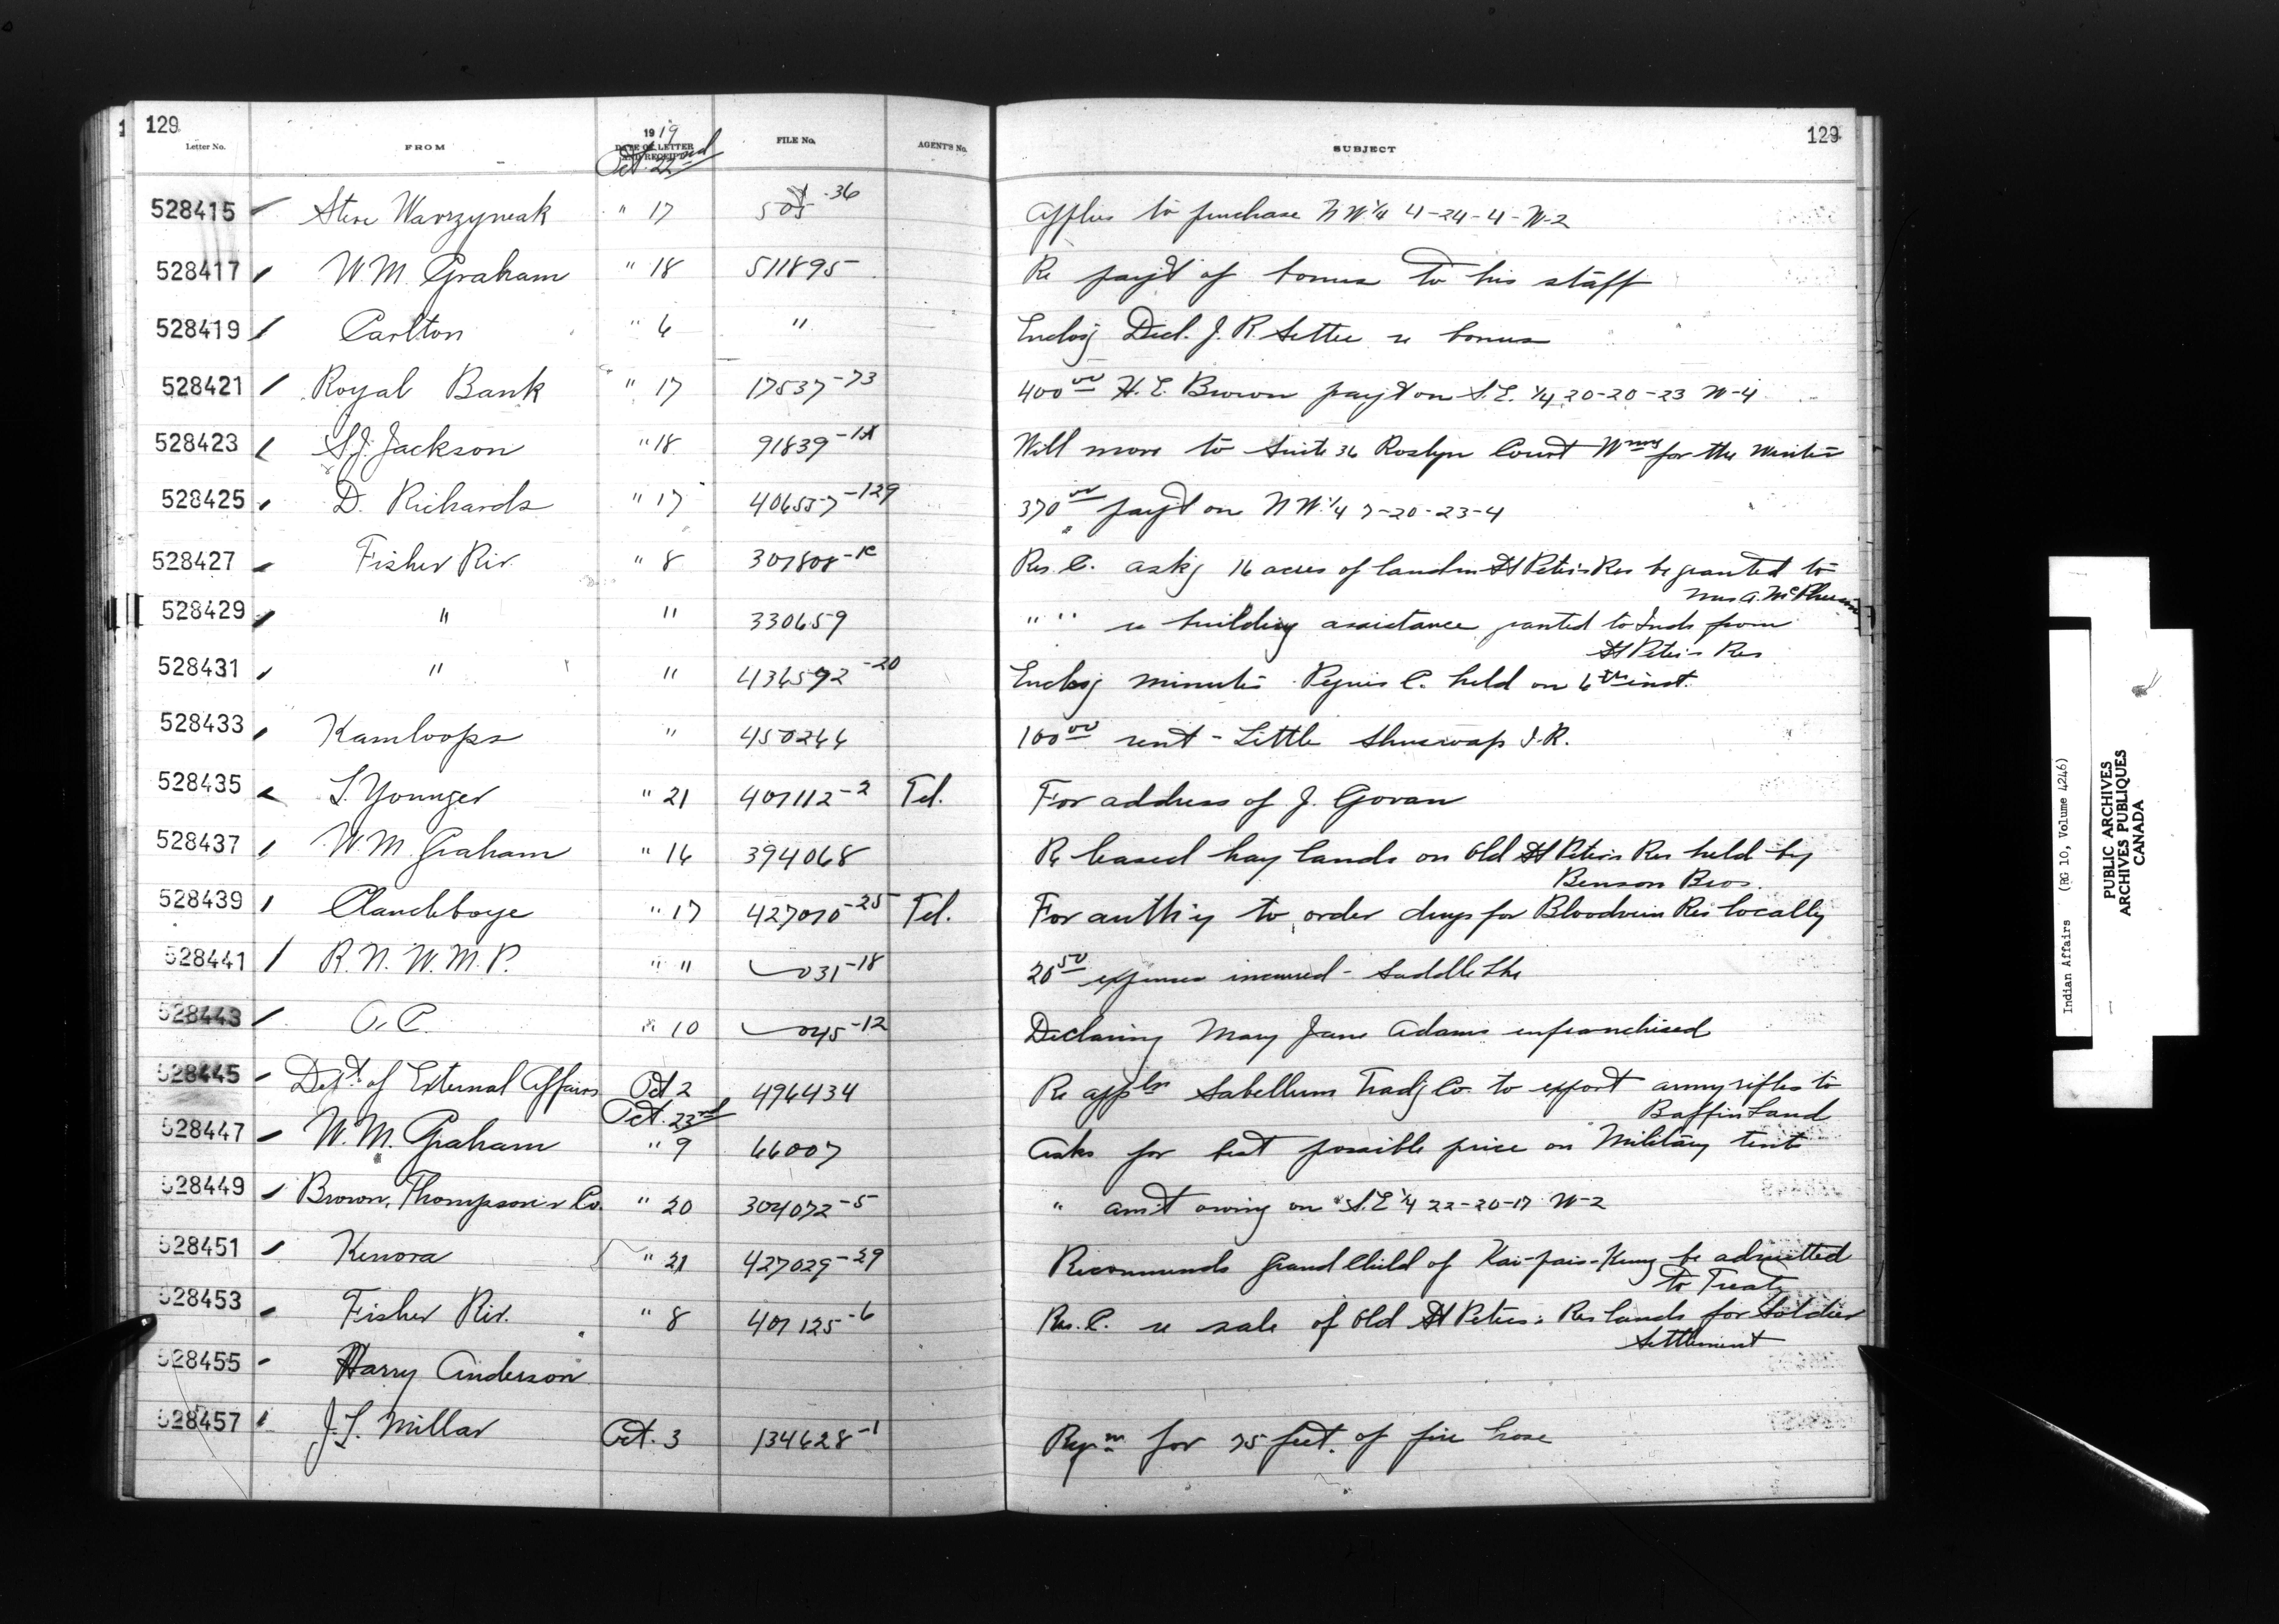 129
129
Letter No. FROM 1919 DATE OF LETTER AND RECEIPT FILE No. AGENT'S No. SUBJECT
Oct. 22nd
528415 Steve Warzyneak " 17 505-36 Applies to purchase N W.¼ 4-24-4-W-2
528417 W.M. Graham " 18 511895 Re pay't of bonus to his staff
528419 Carlton " 6 " Enclos'g Decl. J. R. Settee re bonus
528421 Royal Bank " 17 17537-73 400 00 H. E. Brown pay't on S.E. ¼ 20-20-23 W-4
528423 S.J. Jackson " 18 91839 Will move to Suite 36 Roslyn Court for the Winter
528425 D. Richards " 17 406557-129 370 00 pay't on N W.¼ 7-20-23-4
528427 Fisher Riv. " 8 307808 Res. C. ask'g 16 acres of land in St Peter's Res be granted to
Mrs A. McPherson
528429 " " 330659 " " re building assistance granted to Inds from
St Peter's Res
528431 " " 436592-20 Enclos'g minutes Peguis C. held on 6th inst.
528433 Kamloops " 450266 100 00 rent - Little Shuswap I.R.
528435 L. Younger " 21 407112-2 Tel. For address of J. Govan
528437 W.M. Graham " 16 394068 Re leased hay lands on Old St Peter's Res held by
Benson Bros.
528439 Clandeboye " 17 427070-25 Tel. For auth'y to order drugs for Bloodvein Res locally
528441 R.N.W.M.P. " " 031-18 20 50 expenses incurred - Saddle Lke
528443 O.C. " 10 045-12 Declaring Mary Jane Adams enfranchised
528445 Dep't of External Affairs Oct 2 496434 Re appl'n Sabellum Trad'g Co. to export army rifles to
Baffin Land
Oct. 23rd
528447 W.M. Graham " 9 66007 Asks for best possible price on Military tents
528449 Brown, Thompson & Co. " 20 304072-5 " am't owing on S.E ¼ 22-20-17 W-2
528451 Kenora " 21 427029-29 Recommends Grand Child of be admitted
to Treaty
528453 Fisher Riv. " 8 407125-6 Res. C. re sale of Old St Peter's Res lands for Soldier
Settlement
528455 Harry Anderson
528457 J.L. Millar Oct. 3 134628-1 Req'n for 75 feet. of fire hose
Indian Affairs (RG 10, Volume 4246)
PUBLIC ARCHIVES
ARCHIVES PUBLIQUES
CANADA